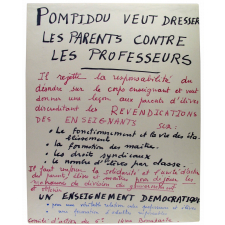 POMPIDOU VEUT DRESSER
LES PARENTS CONTRE
LES PROFESSEURS
Il rejette la responsabilité du
désordre sur le corps enseignant et veut
donner une leçon aux parents d'élèves
discréditant les REVENDICATIONS
DES ENSEIGNANTS SUR:
• le fonctionnement et la vie des éta
blissements
• la formation des maîtres
• les droits syndicaux
• le nombre d'élèves par classe.
Il faut la solidarité et l'unité d'action
parents, élèves et maîtres pour
manoeuvre de division du gouvernement
et obtenir
UN ENSEIGNEMENT DEMOCRATIQUE
• pour une véritable relation entre professeurs et élèves
• une formation
Comité d'action du